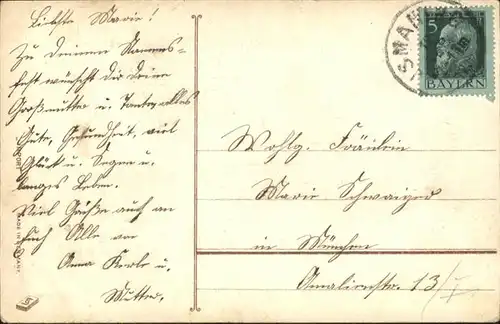 Liebste Marie!
Zu Deinem Namens-
fest wünscht dir deine
Großmutter u. Tante, alles
Gute, Gesundheit, viel
Glück u. Segen u.
langes Leben.
Viel Grüße auch an
Euch Alle von
Anna u.
Mutter.
5
BAYERN
Wohlg. Fräulein
Marie Schwaiger
in München
Amalienstr. 13/I.